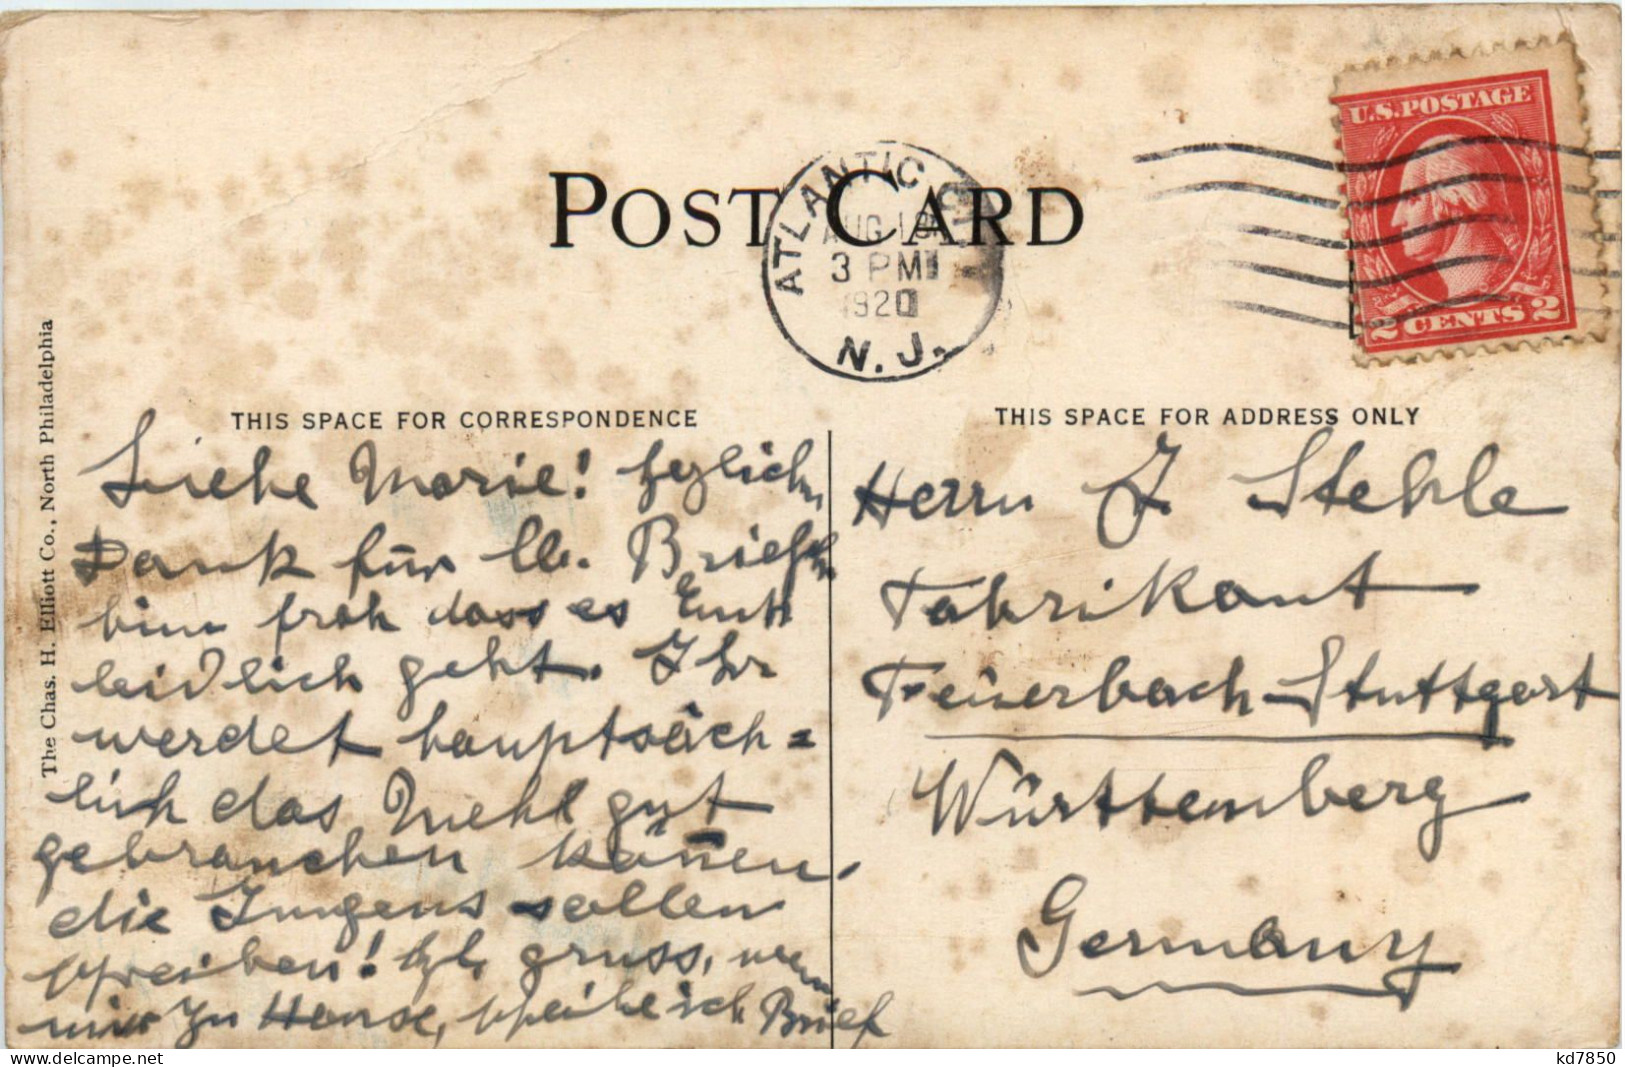 U.S.POSTAGE
2 CENTS 2
POST CARD
ATLANTIC CITY
AUG 18
3 PM
1920
N. J.
The Chas. H. Elliott Co., North Philadelphia
THIS SPACE FOR CORRESPONDENCE
Liebe Marie! herzlichen
Dank für lb. Briefch
bin froh dass es Euch
leidlich geht. Ihr
werdet hauptsäch=
lich das Mehl gut
gebrauchen können.
die Jungens sollen
schreiben! hzl. gruss, wenn
wir zu Hause, schreibe ich Brief
THIS SPACE FOR ADDRESS ONLY
Herrn J. Stehle
Fabrikant
Feuerbach-Stuttgart
Württemberg
Germany
kd7850
delcampe.net